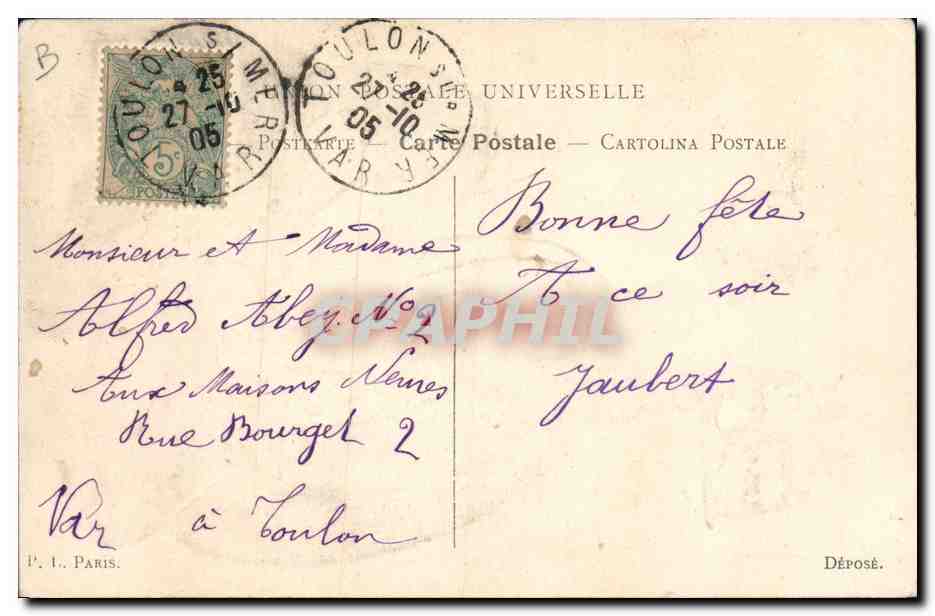 B
TOULON S. MER
4 25
27 -10
05
VAR
5c
POSTES
TOULON SUR MER
4 25
27 -10
05
VAR
UNION POSTALE UNIVERSELLE
POSTKARTE — Carte Postale — CARTOLINA POSTALE
Monsieur et Madame
Alfred Abey. No 2
Aux Maisons Neuves
Rue Bourget 2
Var à Toulon
Bonne fête
A ce soir
Jaubert
CPAPHIL
P. L. PARIS.
DÉPOSÉ.